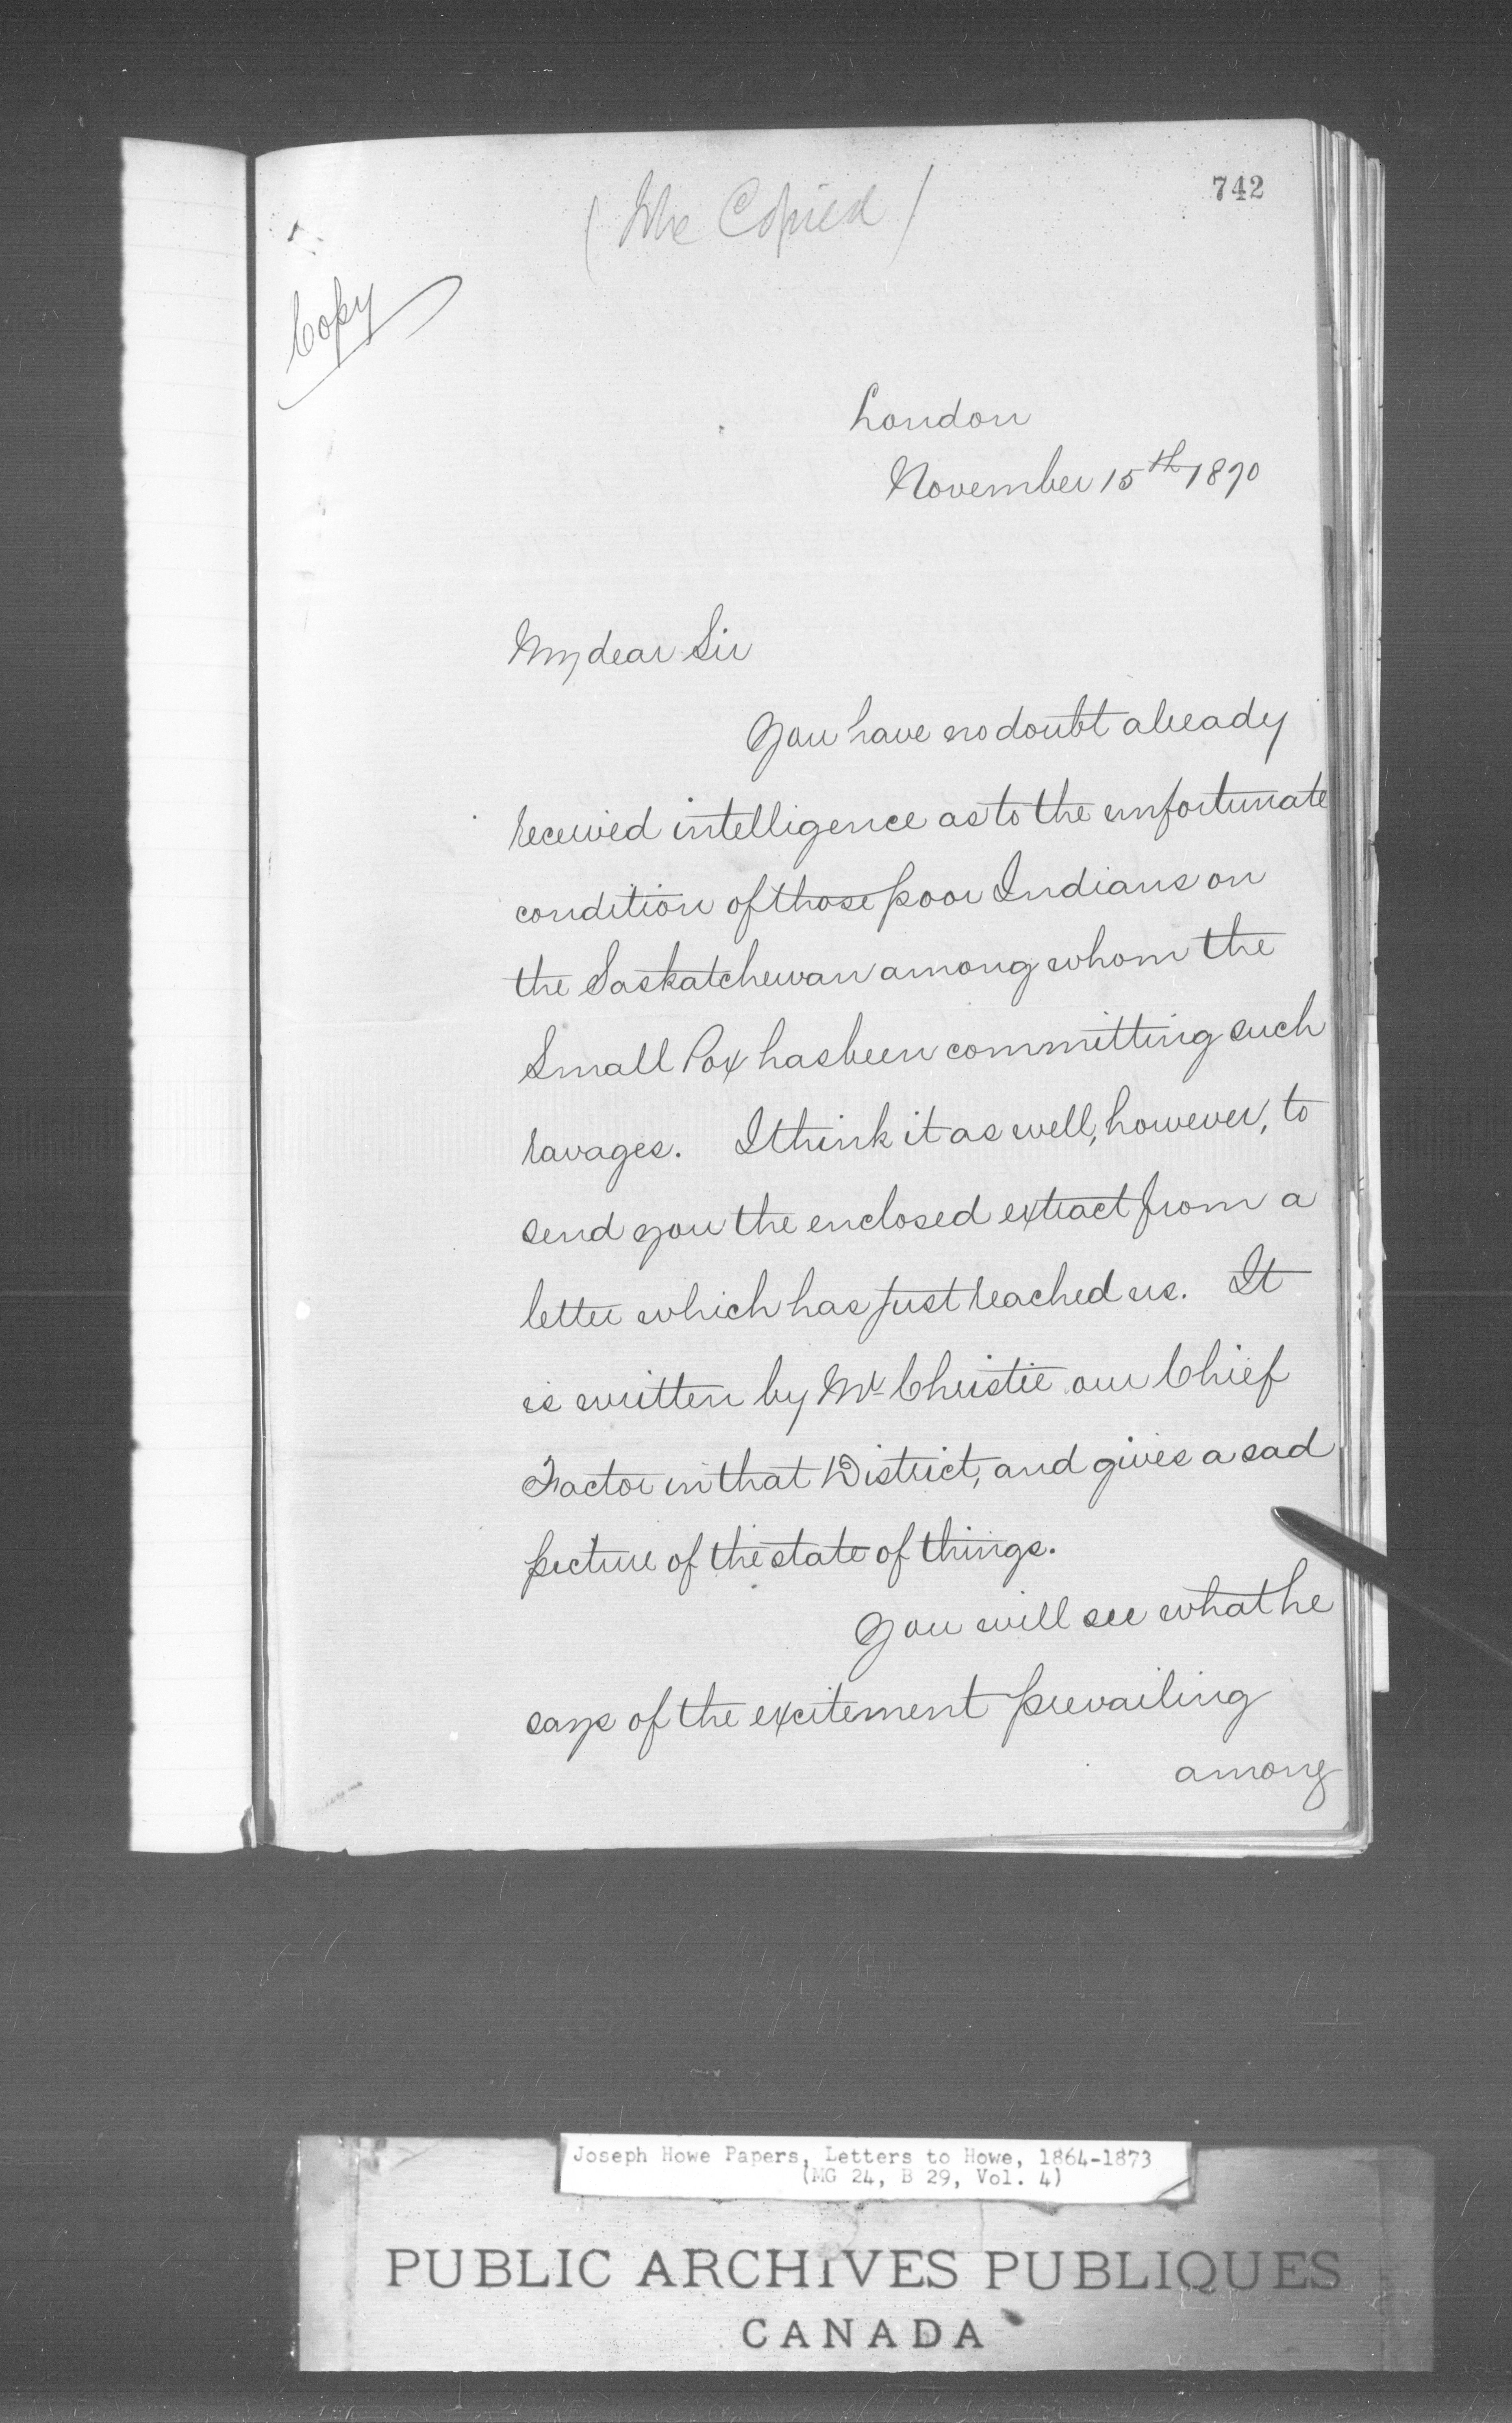 742
(To be Copied)
Copy
London
November 15th 1870
My dear Sir
You have no doubt already
received intelligence as to the unfortunate
condition of those poor Indians on
the Saskatchewan among whom the
Small Pox has been committing such
ravages. I think it as well, however, to
send you the enclosed extract from a
letter which has just reached us. It
is written by Mr Christie our Chief
Factor in that District, and gives a sad
picture of the state of things.
You will see what he
says of the excitement prevailing
among
Joseph Howe Papers, Letters to Howe, 1864-1873
(MG 24, B 29, Vol. 4)
PUBLIC ARCHIVES PUBLIQUES
CANADA